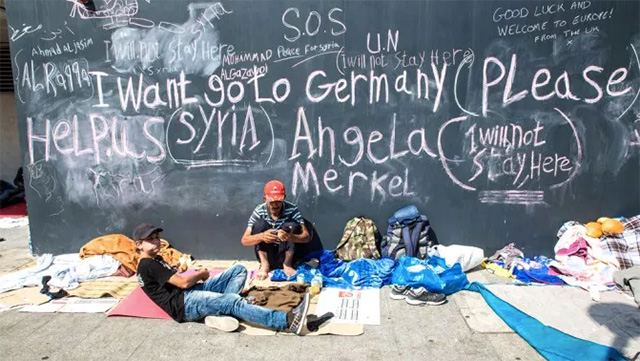 S.O.S
Peace For Syria
U.N
I will not Stay Here
GOOD LUCK AND
WELCOME TO EUROPE!
FROM THE UK
X
Ahmad al Jasim
AL Raqqa
I will not Stay Here
MOHAMMAD
I want go to Germany (PLease
HeLP US (SYRIA) AngeLa
MerkeL
(I will not
Stay Here)